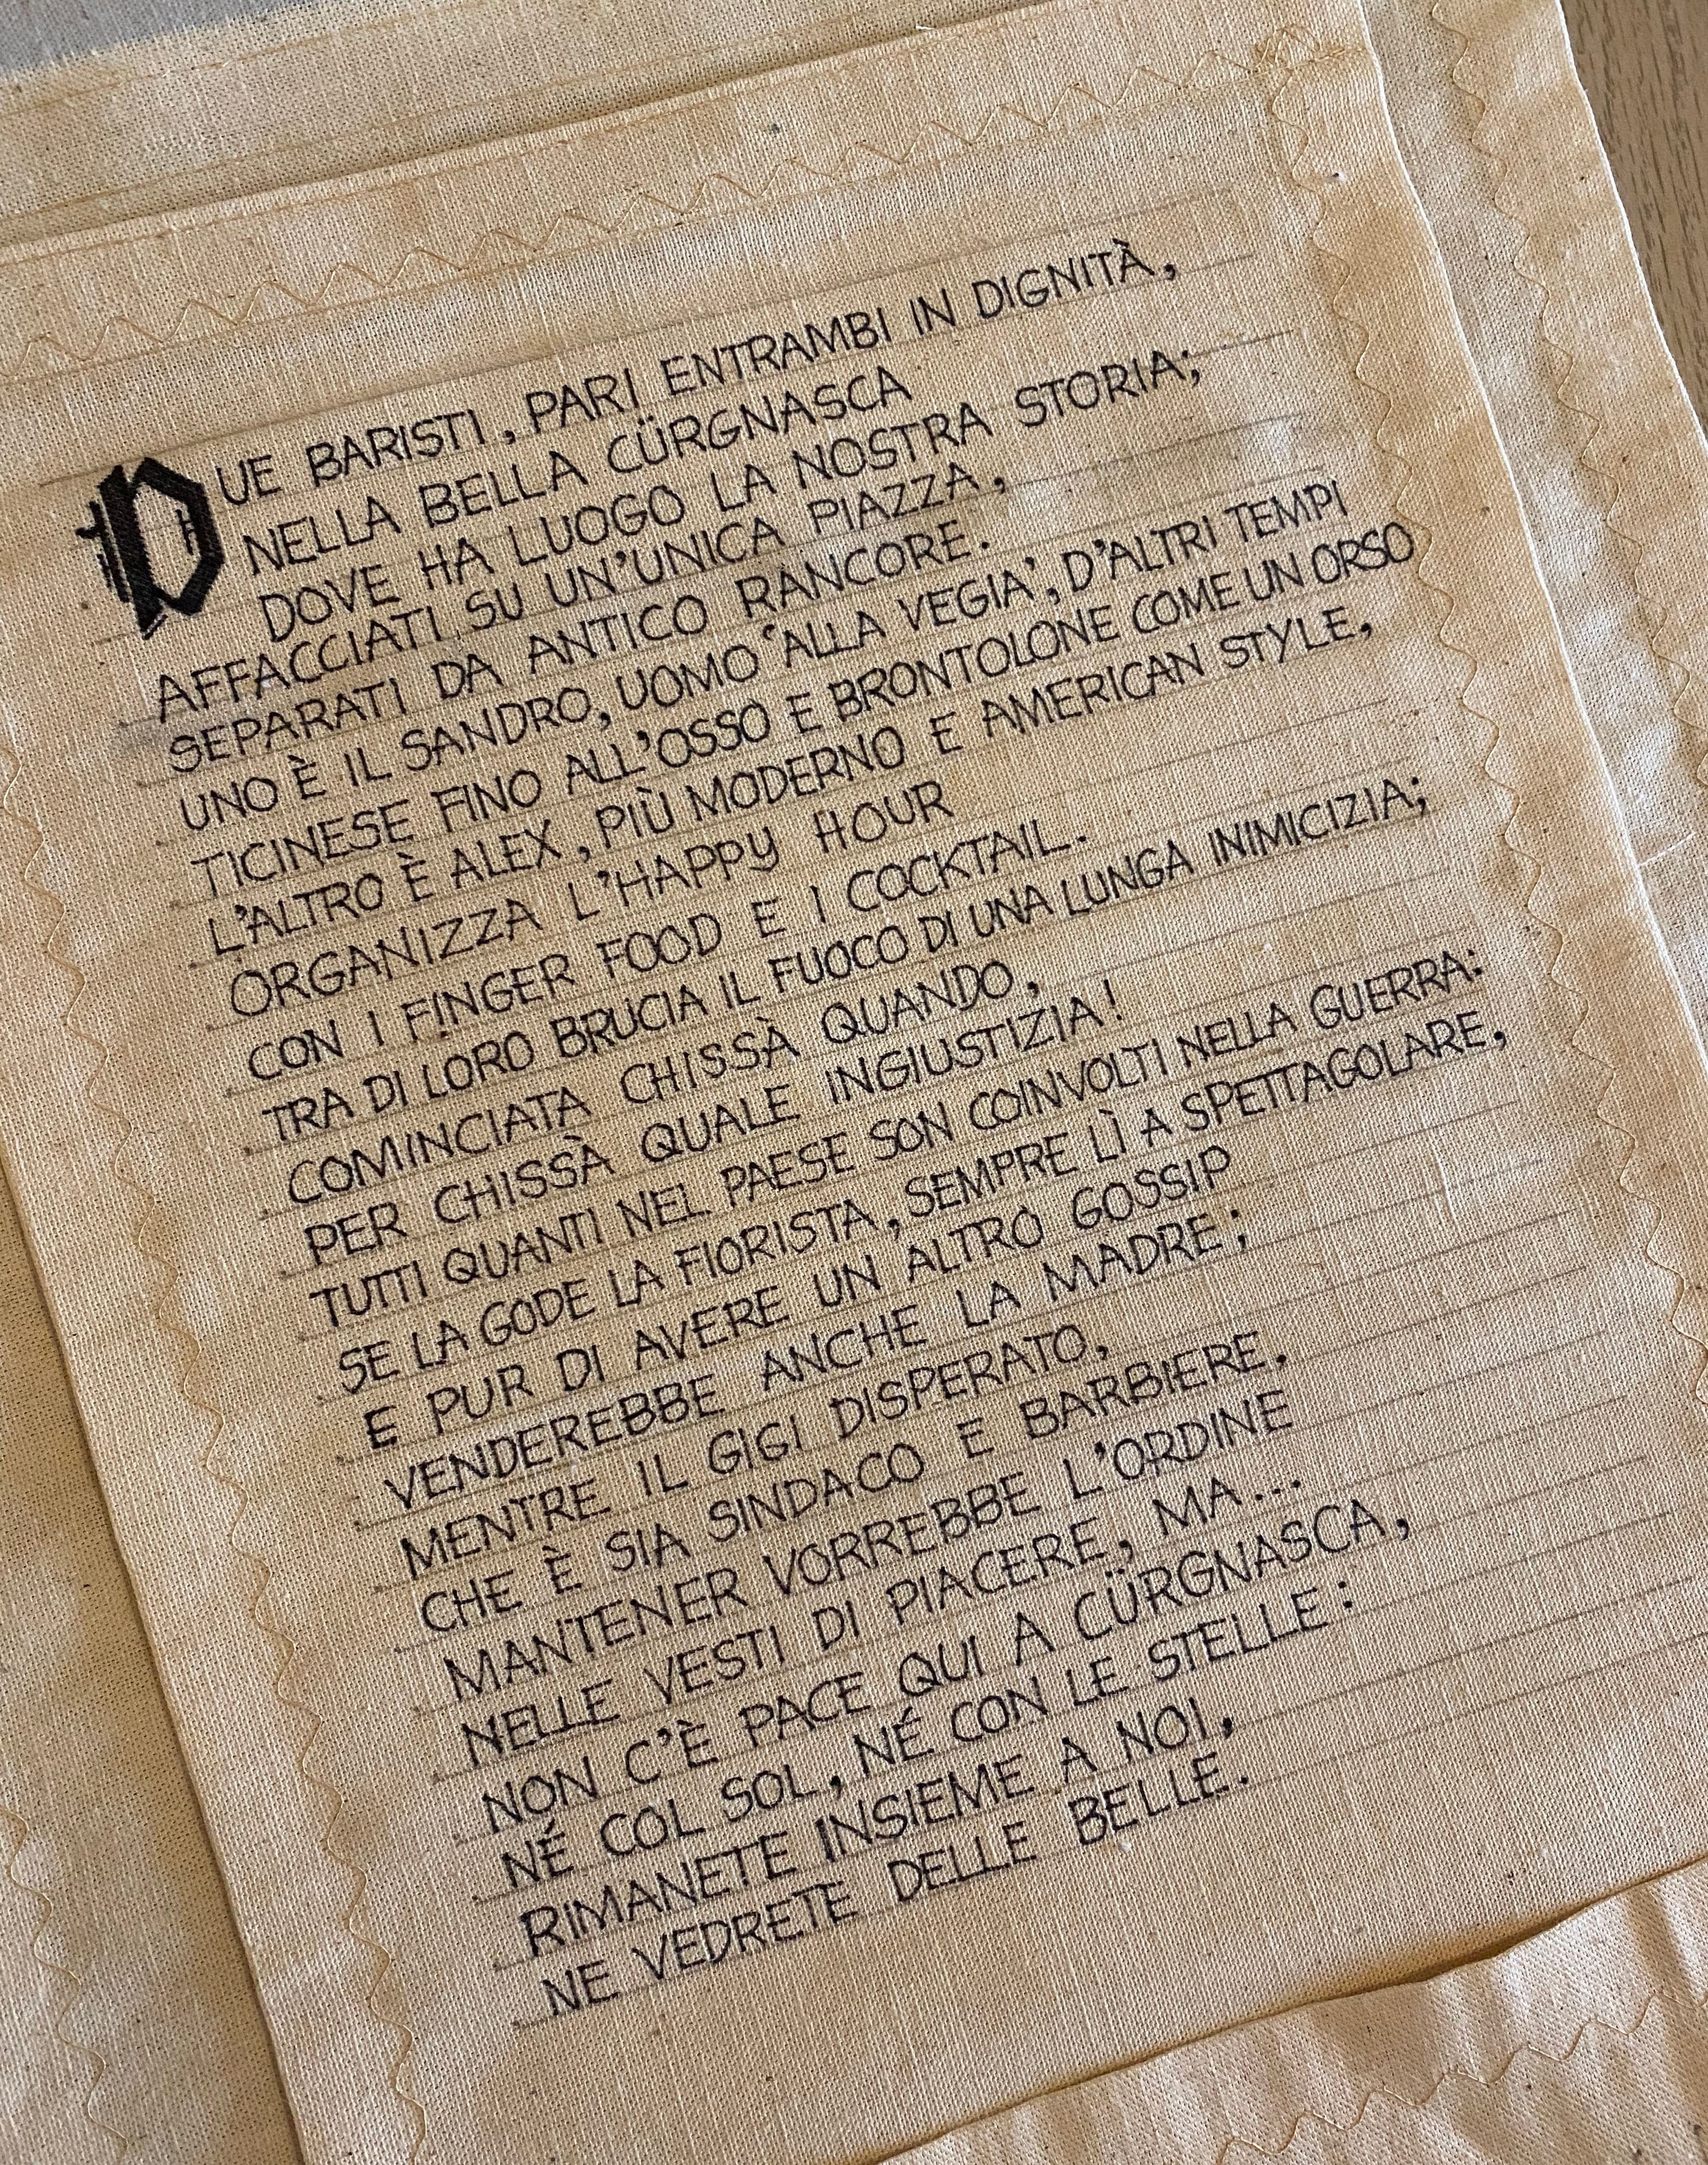 DUE BARISTI, PARI ENTRAMBI IN DIGNITÀ,
NELLA BELLA CÜRGNASCA
DOVE HA LUOGO LA NOSTRA STORIA;
AFFACCIATI SU UN'UNICA PIAZZA,
SEPARATI DA ANTICO RANCORE.
UNO È IL SANDRO, UOMO 'ALLA VEGIA', D'ALTRI TEMPI
TICINESE FINO ALL'OSSO E BRONTOLONE COME UN ORSO
L'ALTRO È ALEX, PIÙ MODERNO E AMERICAN STYLE,
ORGANIZZA L'HAPPY HOUR
CON I FINGER FOOD E I COCKTAIL.
TRA DI LORO BRUCIA IL FUOCO DI UNA LUNGA INIMICIZIA;
COMINCIATA CHISSÀ QUANDO,
PER CHISSÀ QUALE INGIUSTIZIA!
TUTTI QUANTI NEL PAESE SON COINVOLTI NELLA GUERRA:
SE LA GODE LA FIORISTA, SEMPRE LÌ A SPETTAGOLARE,
E PUR DI AVERE UN ALTRO GOSSIP
VENDEREBBE ANCHE LA MADRE;
MENTRE IL GIGI DISPERATO,
CHE È SIA SINDACO E BARBIERE,
MANTENER VORREBBE L'ORDINE
NELLE VESTI DI PIACERE, MA...
NON C'È PACE QUI A CÜRGNASCA,
NÉ COL SOL, NÉ CON LE STELLE:
RIMANETE INSIEME A NOI,
NE VEDRETE DELLE BELLE.